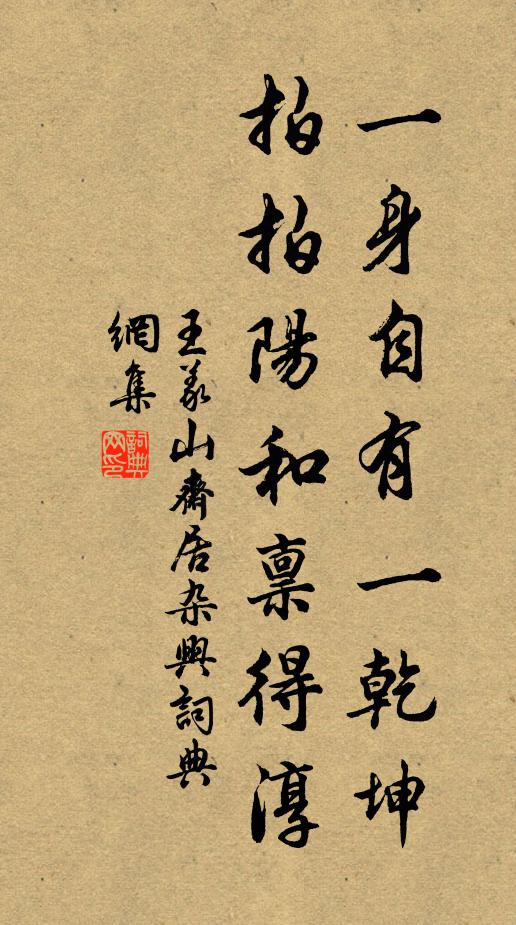 一身自有一乾坤
拍拍陽和稟得淳
王義山齋居杂興詞典
網集
詞典网印